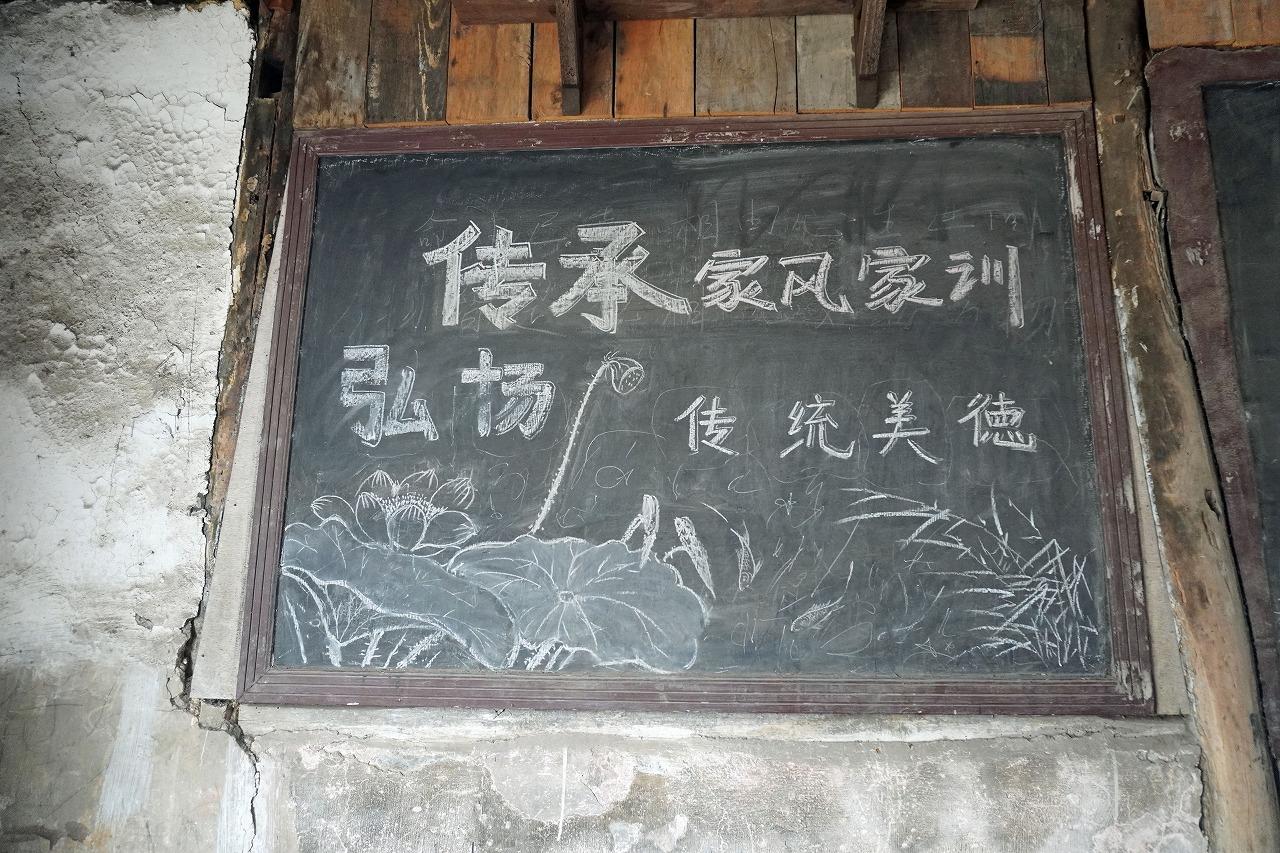 传承家风家训
弘扬 传统美德